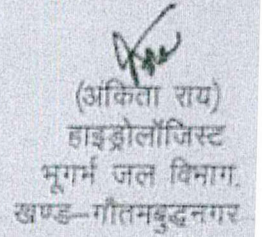 (अंकिता राय)
हाइड्रोलॉजिस्ट
भूगर्भ जल विभाग,
खण्ड-गौतमबुद्धनगर